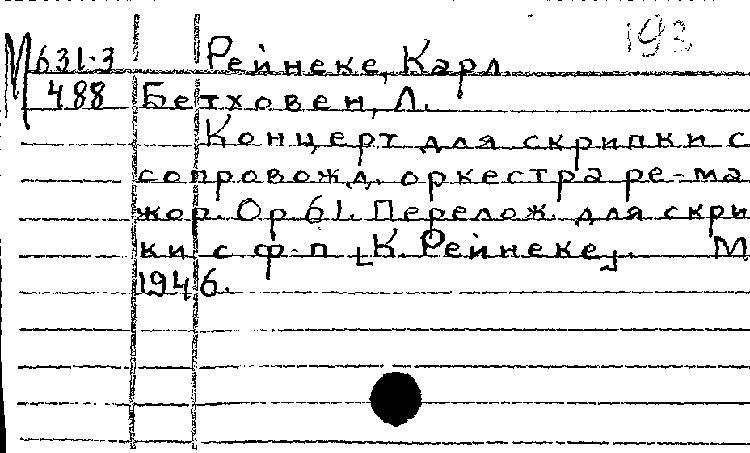 193
М 631-3 Рейнеке, Карл
488 Бетховен, Л.
Концерт для скрипки с
сопровожд. оркестра ре-ма
жор. Op 61. Перелож. для скри
ки с ф-п [К. Рейнеке]. М
1946.